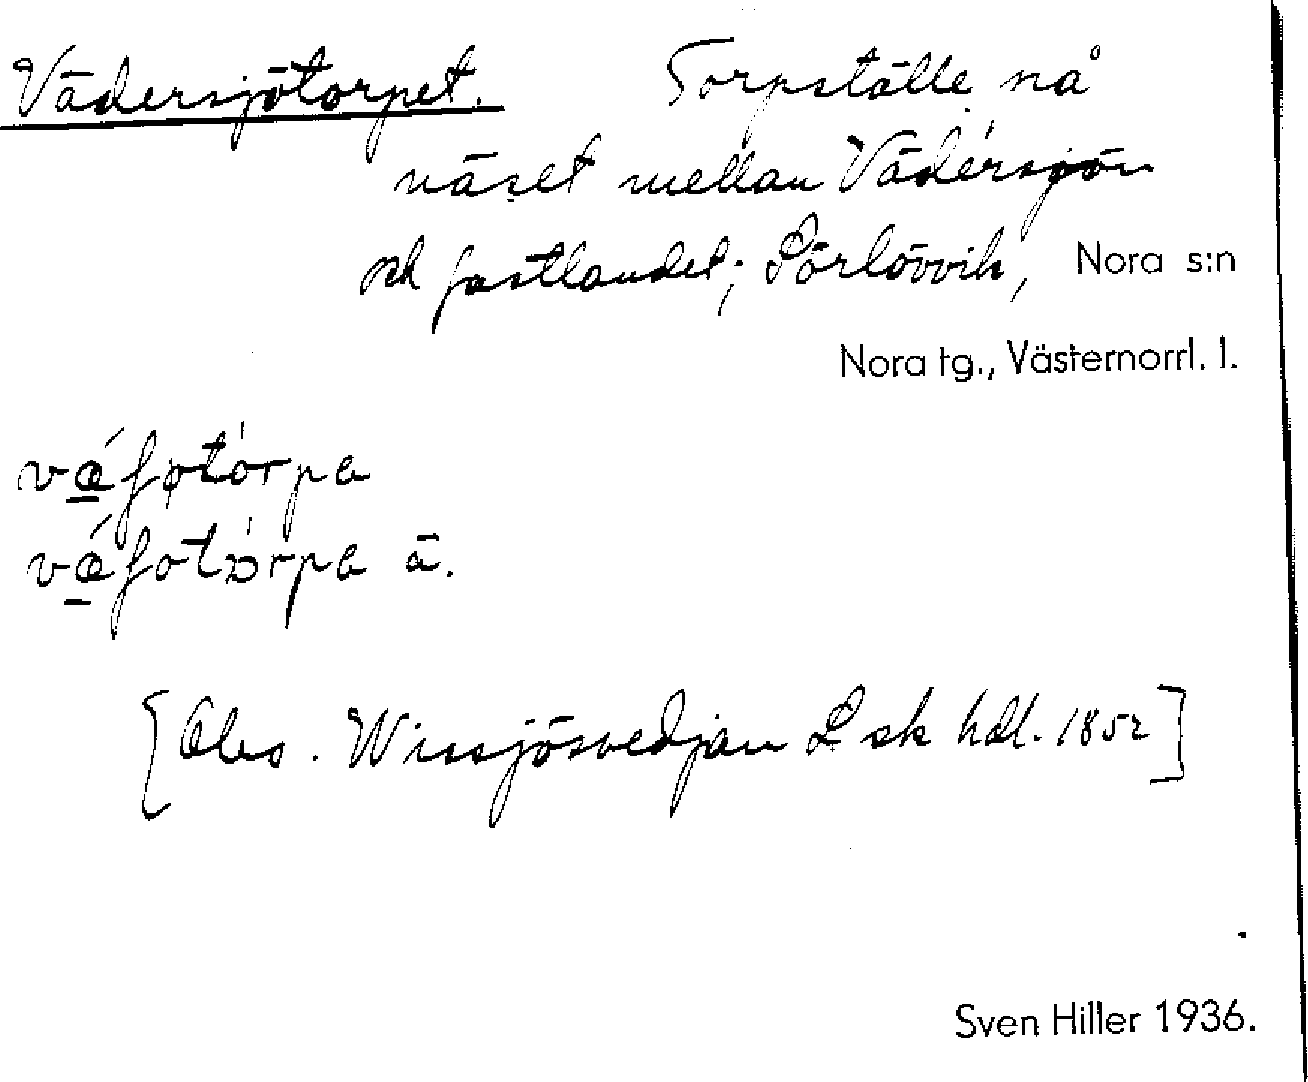 Vädersjötorpet. Torpställe på
näset mellan Vädersjön
och fastlandet; Sörlövvik, Nora s:n
Nora tg., Västernorrl. l.
[Obs. Wissjösvedjan L sk hdl. 1852]
Sven Hiller 1936.